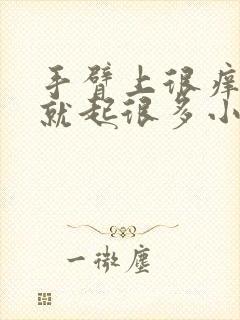 手臂上很痒
就起很多小
一微尘